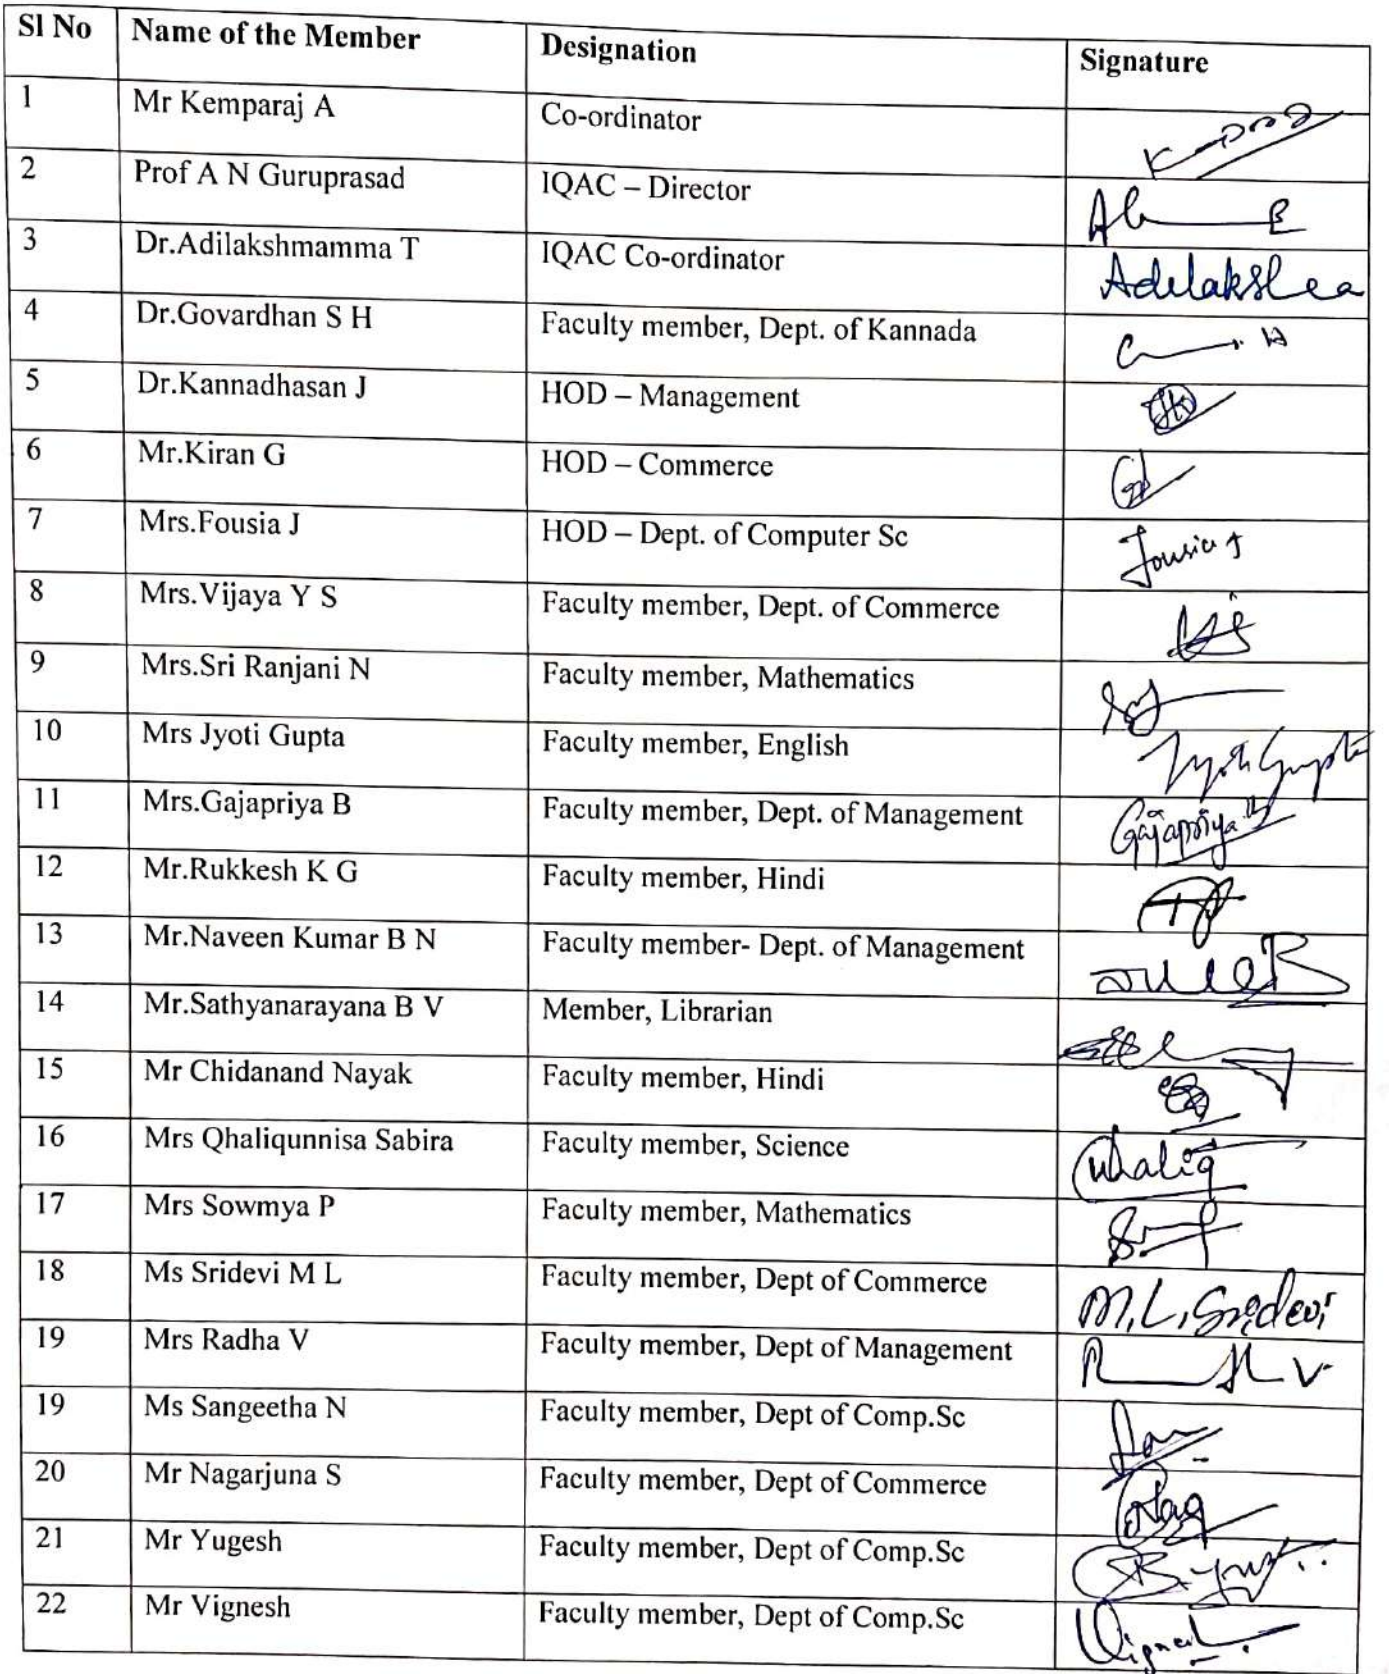 Sl No Name of the Member Designation Signature
1 Mr Kemparaj A Co-ordinator
2 Prof A N Guruprasad IQAC – Director
3 Dr.Adilakshmamma T IQAC Co-ordinator
4 Dr.Govardhan S H Faculty member, Dept. of Kannada
5 Dr.Kannadhasan J HOD – Management
6 Mr.Kiran G HOD – Commerce
7 Mrs.Fousia J HOD – Dept. of Computer Sc Fousia J
8 Mrs.Vijaya Y S Faculty member, Dept. of Commerce
9 Mrs.Sri Ranjani N Faculty member, Mathematics
10 Mrs Jyoti Gupta Faculty member, English Jyoti Gupta
11 Mrs.Gajapriya B Faculty member, Dept. of Management Gajapriya B
12 Mr.Rukkesh K G Faculty member, Hindi
13 Mr.Naveen Kumar B N Faculty member- Dept. of Management
14 Mr.Sathyanarayana B V Member, Librarian
15 Mr Chidanand Nayak Faculty member, Hindi
16 Mrs Qhaliqunnisa Sabira Faculty member, Science
17 Mrs Sowmya P Faculty member, Mathematics
18 Ms Sridevi M L Faculty member, Dept of Commerce M.L.Sridevi
19 Mrs Radha V Faculty member, Dept of Management
19 Ms Sangeetha N Faculty member, Dept of Comp.Sc
20 Mr Nagarjuna S Faculty member, Dept of Commerce
21 Mr Yugesh Faculty member, Dept of Comp.Sc
22 Mr Vignesh Faculty member, Dept of Comp.Sc